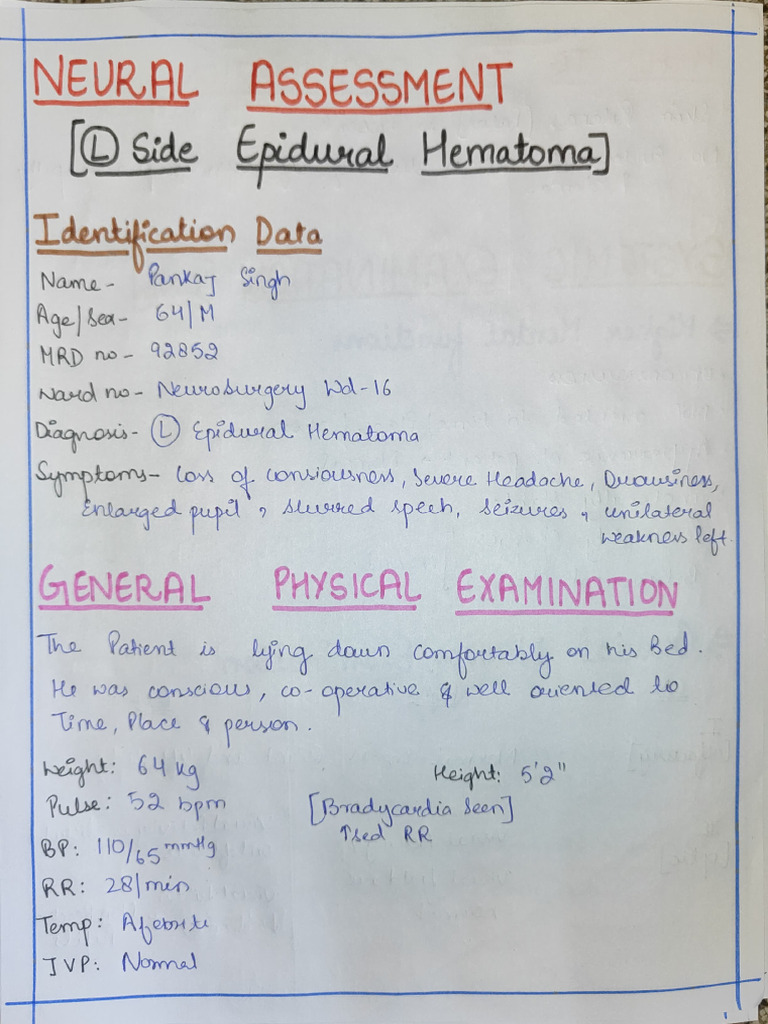 NEURAL ASSESSMENT
[Ⓛ Side Epidural Hematoma]
Identification Data
Name - Pankaj Singh
Age/Sex - 64/M
MRD no - 92852
Ward no - Neurosurgery Wd-16
Diagnosis - Ⓛ Epidural Hematoma
Symptoms - Loss of consiousness, Severe Headache, Drowsiness,
Enlarged pupil, slurred spech, seizures, unilateral
weakness left.
GENERAL PHYSICAL EXAMINATION
The Patient is lying down comfortably on his Bed.
He was conscious, co-operative & well oriented to
Time, Place & person.
Weight: 64 kg Height: 5'2"
Pulse: 52 bpm [Bradycardia Seen]
↑sed RR
BP: 110/65 mmHg
RR: 28/min
Temp: Afebrile
JVP: Normal